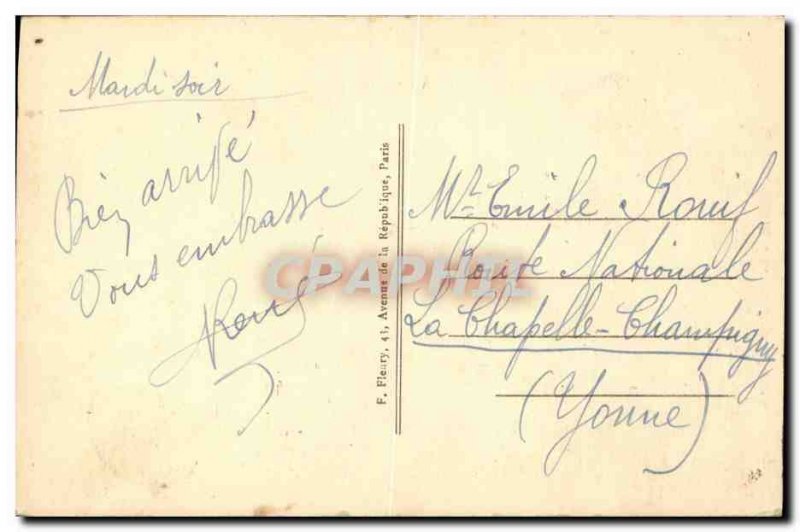 Mardi soir
Bien arrivé
Vous embrasse
René
F. Fleury, 43, Avenue de la République, Paris
Mr Emile
Route Nationale
La Chapelle-Champigny
(Yonne)
CPAPHIL